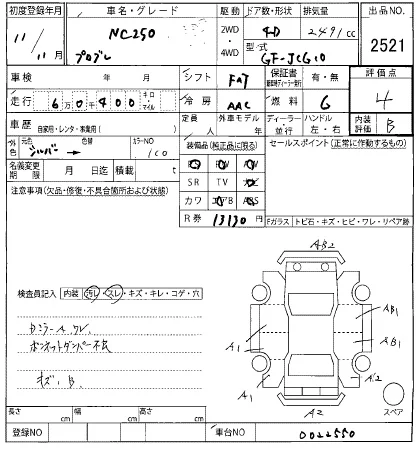 初度登録年月 車名・グレード 駆動 ドア数・形状 排気量 出品NO.
11/11月 NC250 プログレ 2WD・4WD 4D 2491cc 2521
型式 GF-JCG10
車検 年 月 シフト FAT 保証書 有・無 評価点
走行 6万0千400 キロ・マイル 冷房 AAC 燃料 G 4
車歴 自家用・レンタ・業務用( ) 定員 人 外車モデル 年 ディーラー・並行 ハンドル 左・右 内装評価 B
外色 元色 シルバー 色替 カラーNO 1C0
装備品(純正品に限る) セールスポイント(正常に作動するもの)
名義変更期限 月 日迄 積載 t
SR TV
注意事項(欠品・修復・不具合箇所および状態)
カワ エアB ABS
R券 13170 Fガラス トビ石・キズ・ヒビ・ワレ・リペア跡
検査員記入 内装 汚レ・スレ・キズ・キレ・コゲ・穴
Dミラー A ワレ
ボンネットダンパー不良
キズ, B
AB2
AB1
A1 AB1
A1 A2
A2
スペア
長さ cm 幅 cm 高さ cm
登録NO 車台NO 0022550